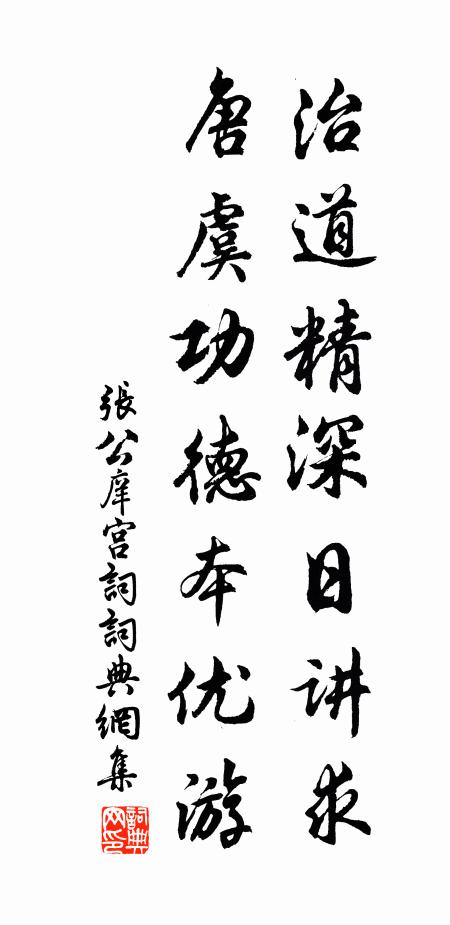 治道精深日讲求
唐虞功德本优游
張公庠宮詞詞典網集
詞典网印